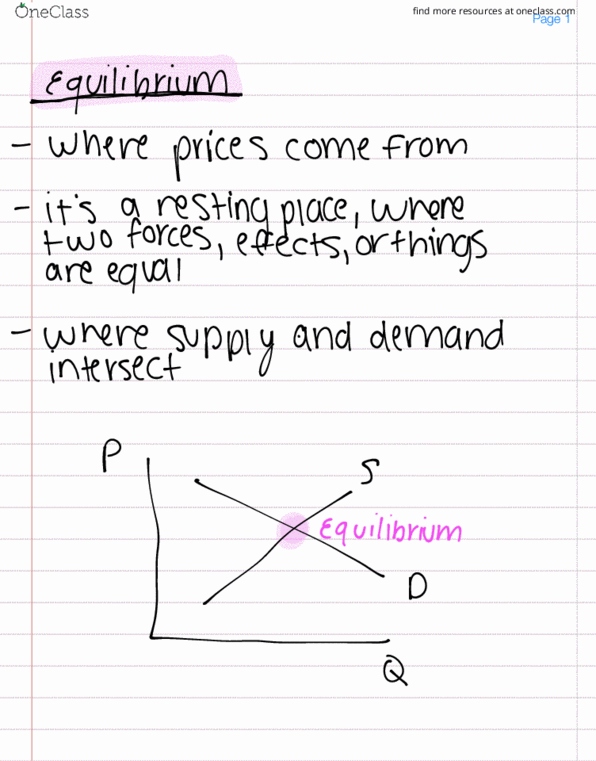 OneClass
find more resources at oneclass.com
Page 1
Equilibrium
- where prices come from
- it's a resting place, where
two forces, effects, or things
are equal
- where supply and demand
intersect
P
S
Equilibrium
D
Q